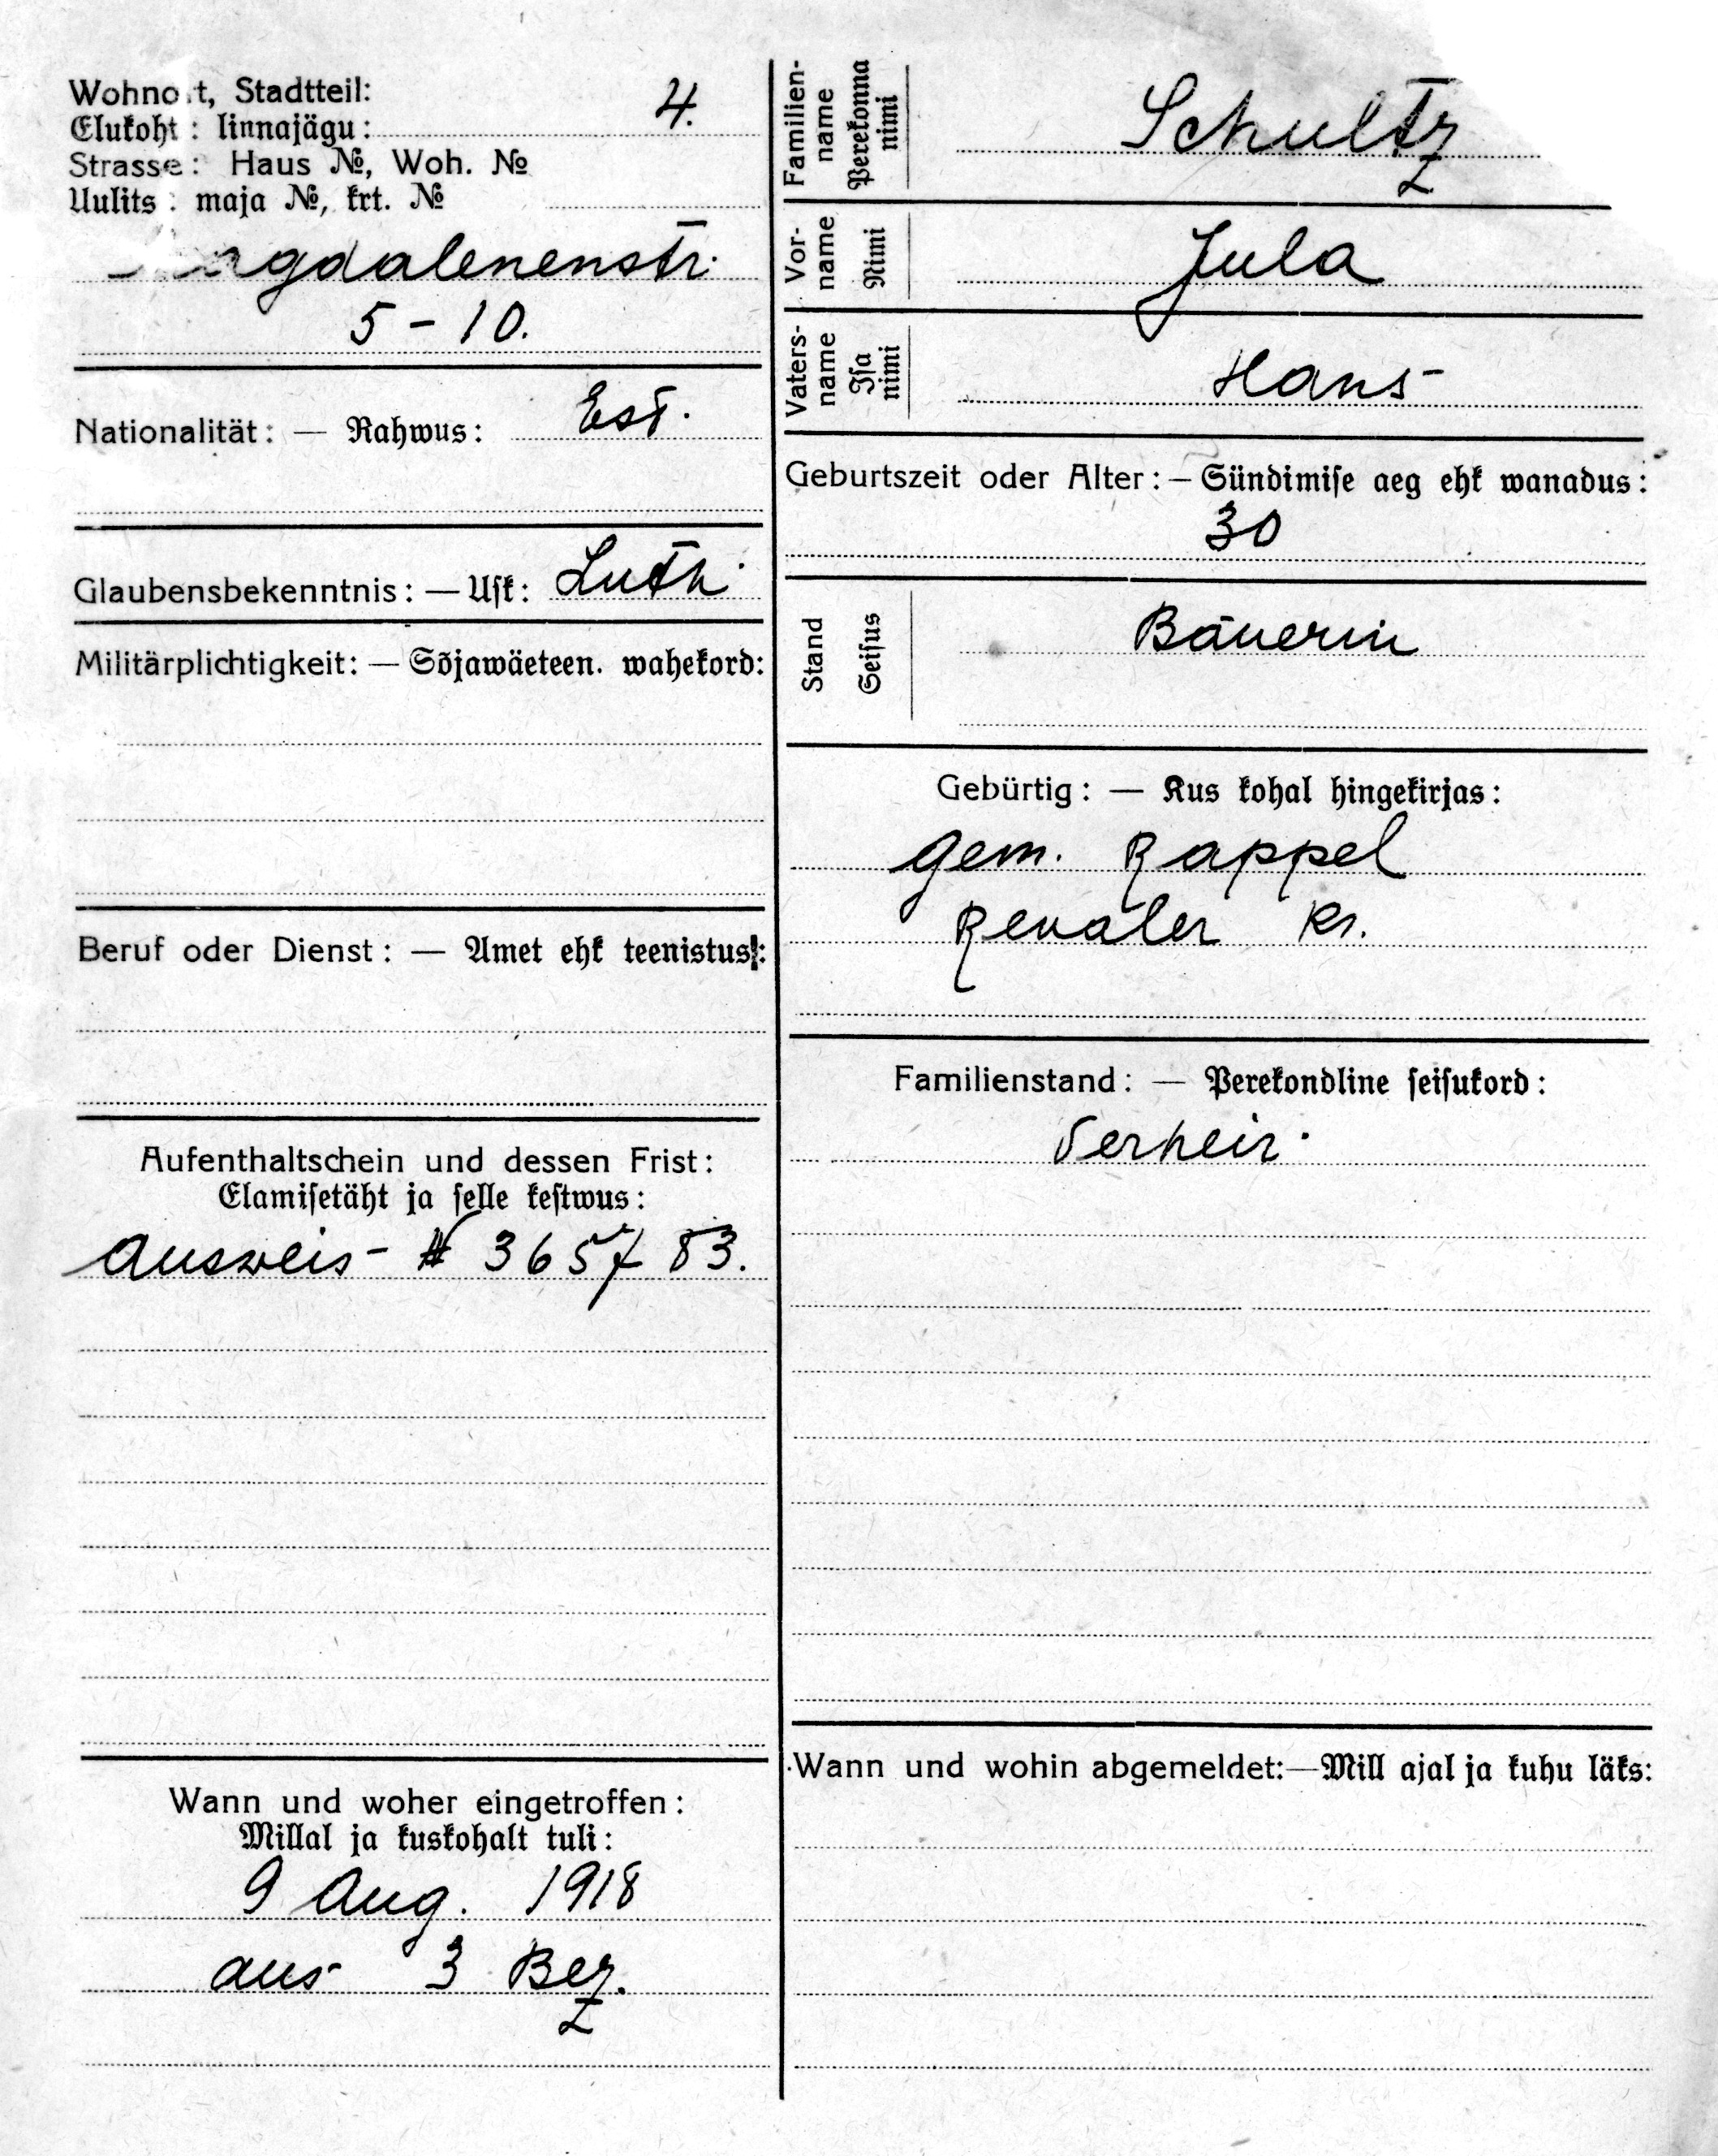 Wohno t, Stadtteil:
Elukoht : linnajägu: 4.
Strasse: Haus №, Woh. №
Uulits : maja №, krt. №
agdalenenstr.
5 - 10.
Nationalität: — Rahwus: Est.
Glaubensbekenntnis: — Usk: Luth.
Militärplichtigkeit: — Sõjawäeteen. wahekord:
Beruf oder Dienst: — Amet ehk teenistus:
Aufenthaltschein und dessen Frist:
Elamisetäht ja selle kestwus:
Ausweis - # 365783.
Wann und woher eingetroffen:
Millal ja kuskohalt tuli:
9 Aug. 1918
aus 3 Bez.
Familien-
name
Perekonna
nimi
Schultz
Vor-
name
Nimi
Jula
Vaters-
name
Isa
nimi
Hans
Geburtszeit oder Alter: — Sündimise aeg ehk wanadus:
30
Stand
Seisus
Bäuerin
Gebürtig: — Kus kohal hingekirjas:
Gem. Rappel
Revaler Kr.
Familienstand: — Perekondline seisukord:
Verheir.
Wann und wohin abgemeldet: — Mill ajal ja kuhu läks: